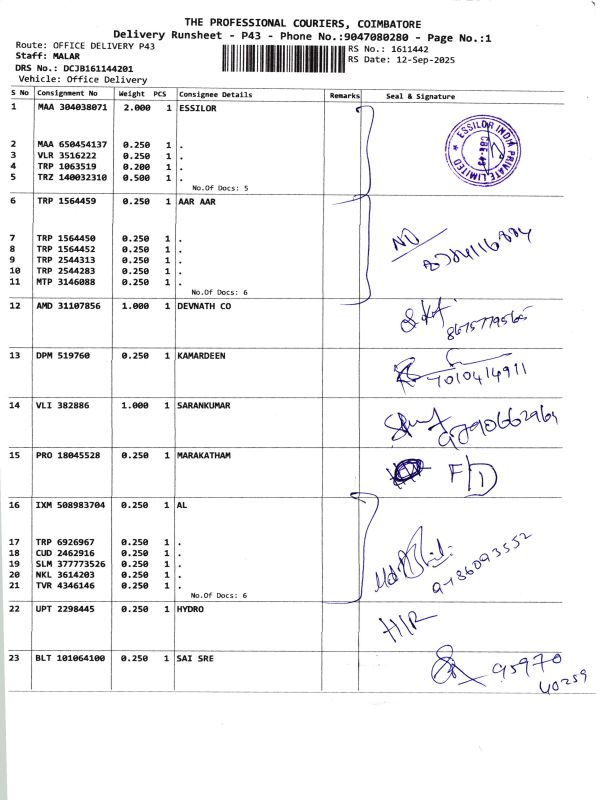 THE PROFESSIONAL COURIERS, COIMBATORE
Delivery Runsheet - P43 - Phone No.:9047080280 - Page No.:1
Route: OFFICE DELIVERY P43
RS No.: 1611442
Staff: MALAR
RS Date: 12-Sep-2025
DRS No.: DCJB161144201
Vehicle: Office Delivery
S No Consignment No Weight PCS Consignee Details Remarks Seal & Signature
1 MAA 304038071 2.000 1 ESSILOR
ESSILOR INDIA PRIVATE LIMITED
2 MAA 650454137 0.250 1 .
3 VLR 3516222 0.250 1 .
4 TRP 1063519 0.200 1 .
5 TRZ 140032310 0.500 1 .
No.Of Docs: 5
6 TRP 1564459 0.250 1 AAR AAR
7 TRP 1564450 0.250 1 .
8 TRP 1564452 0.250 1 .
9 TRP 2544313 0.250 1 .
10 TRP 2544283 0.250 1 .
11 MTP 3146088 0.250 1 .
No.Of Docs: 6
12 AMD 31107856 1.000 1 DEVNATH CO
13 DPM 519760 0.250 1 KAMARDEEN
7010414911
14 VLI 382886 1.000 1 SARANKUMAR
15 PRO 18045528 0.250 1 MARAKATHAM
F/D
16 IXM 508983704 0.250 1 AL
17 TRP 6926967 0.250 1 .
18 CUD 2462916 0.250 1 .
19 SLM 377773526 0.250 1 .
20 NKL 3614203 0.250 1 .
21 TVR 4346146 0.250 1 .
No.Of Docs: 6
22 UPT 2298445 0.250 1 HYDRO
23 BLT 101064100 0.250 1 SAI SRE
95970
40259